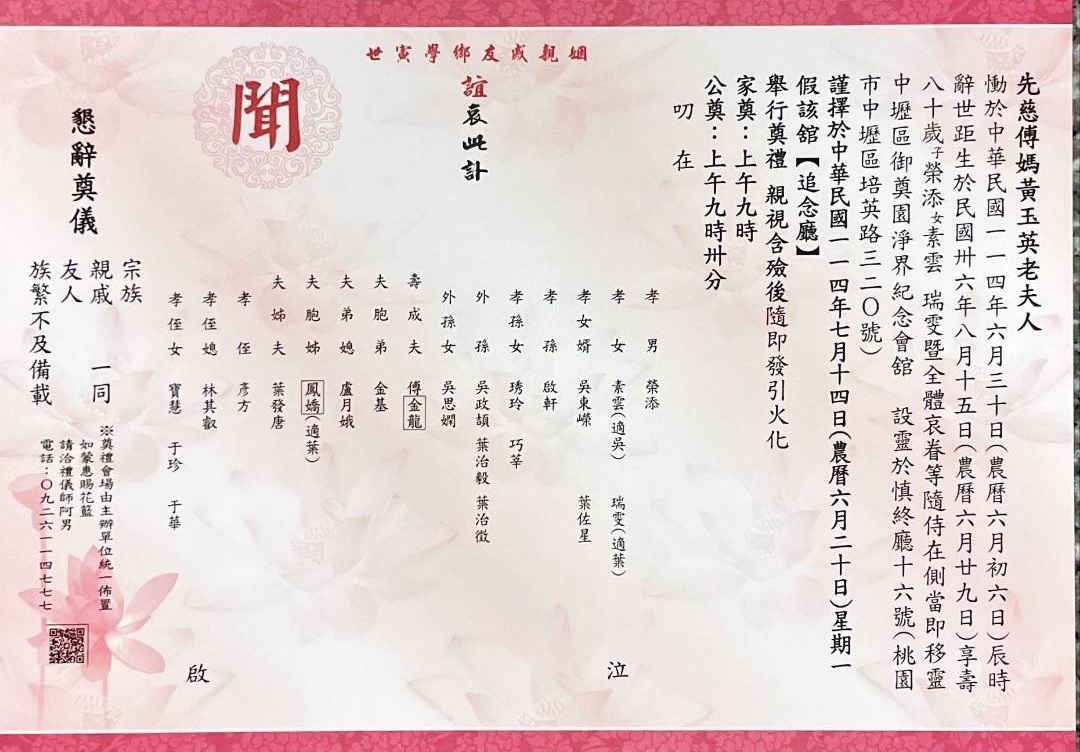 先慈傅媽黃玉英老夫人
慟於中華民國一一四年六月三十日(農曆六月初六日)辰時
辭世距生於民國卅六年八月十五日(農曆六月廿九日)享壽
八十歲子榮添女素雲 瑞雯暨全體哀眷等隨侍在側當即移靈
中壢區御奠園淨界紀念會館 設靈於慎終廳十六號(桃園
市中壢區培英路三二〇號)
謹擇於中華民國一一四年七月十四日(農曆六月二十日)星期一
假該館【追念廳】
舉行奠禮 親視含殮後隨即發引火化
家奠：上午九時
公奠：上午九時卅分
叨在
姻親戚友鄉學寅世
誼哀此訃
聞
孝男 榮添
孝女 素雲(適吳) 瑞雯(適葉)
孝女婿 吳東嶸 葉佐星
孝孫 啟軒
孝孫女 琇玲 巧莘
外孫 吳政頡 葉治毅 葉治徵
外孫女 吳思嫻
壽成夫 傅金龍
夫胞弟 金基
夫弟媳 盧月娥
夫胞姊 鳳嬌(適葉)
夫姊夫 葉發唐
孝侄 彥方
孝侄媳 林其叡
孝侄女 寶慧 于珍 于華
泣
啟
宗族
親戚 一同
友人
族繁不及備載
懇辭奠儀
※奠禮會場由主辦單位統一佈置
如蒙惠賜花籃
請洽禮儀師阿男
電話：〇九二六一一四七七七